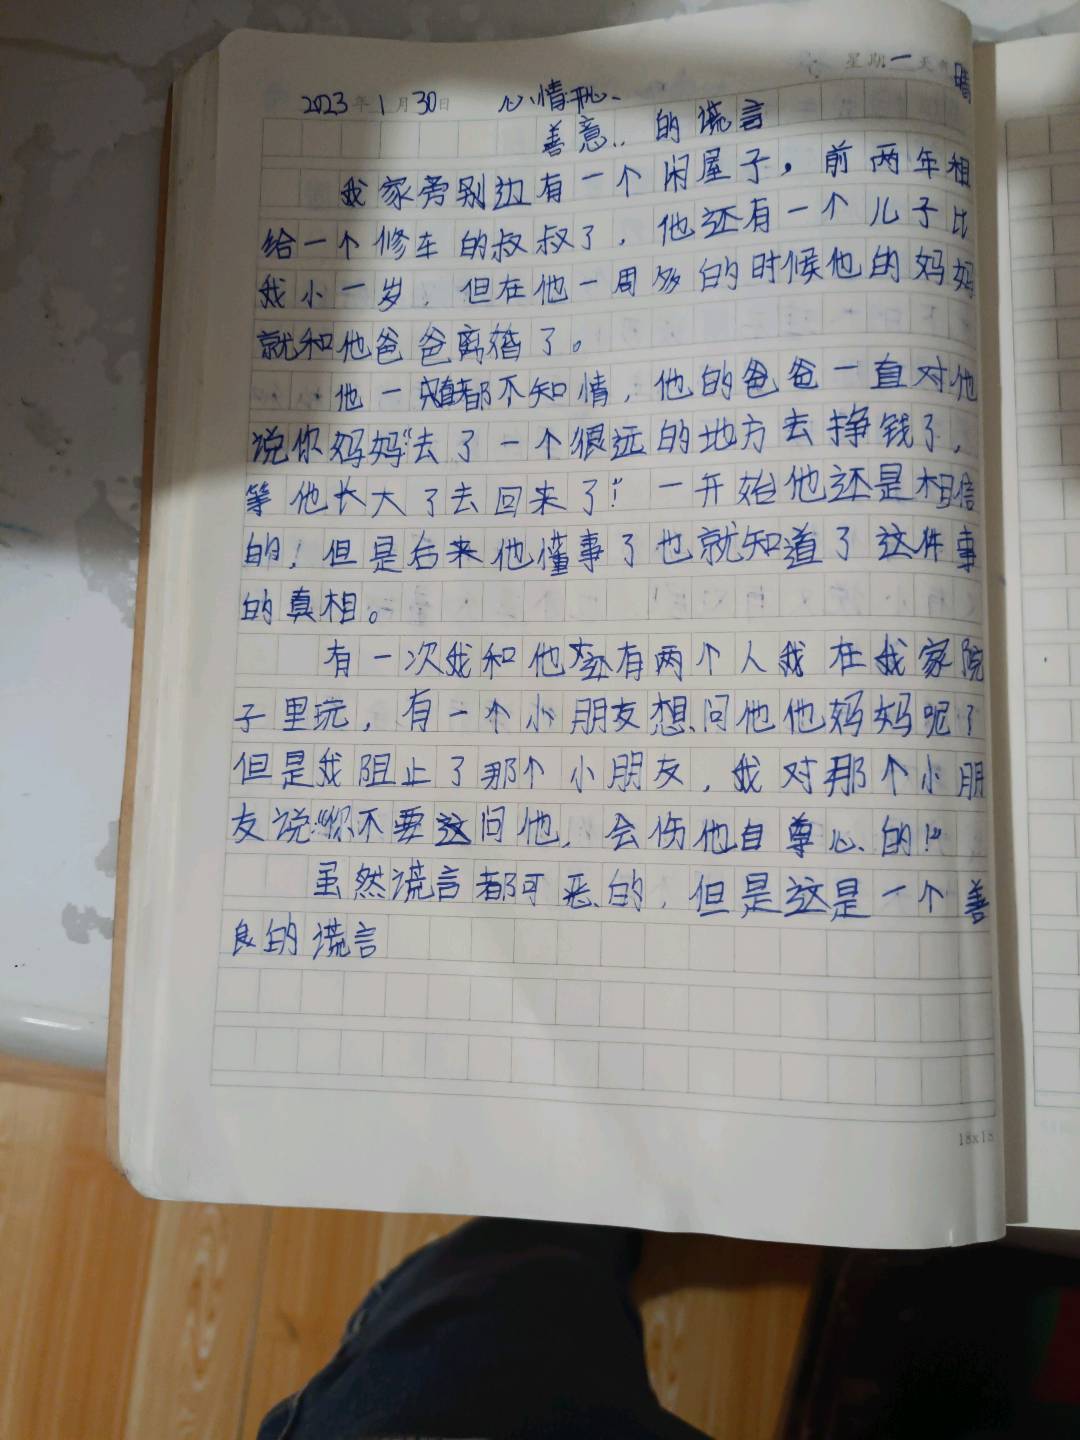 星期一 天 晴
2023年1月30日 心情
善意 的谎言
我家旁别边有一个闲屋子，前两年租
给一个修车的叔叔了，他还有一个儿子比
我小一岁，但在他一周多的时候他的妈妈
就和他爸爸离婚了。
他一 都不知情，他的爸爸一直对他
说你妈妈“去了一个很远的地方去挣钱了，
等他长大了去回来了！”一开始他还是相信
的！但是后来他懂事了也就知道了这件事
的真相。
有一次我和他 还有两个人我在我家院
子里玩，有一个小朋友想问他他妈妈呢？
但是我阻止了那个小朋友，我对那个小朋
友说：“你不要这问他，会伤他自尊心的！”
虽然谎言都可恶的，但是这是一个善
良的谎言
18×18